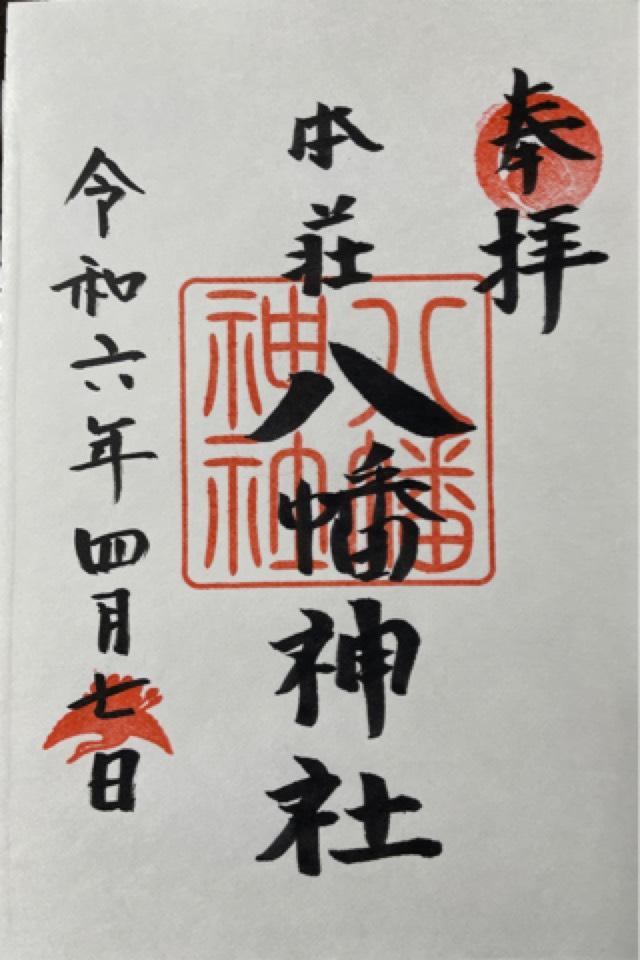 奉拝
本荘
八幡神社
八幡
神社
令和六年四月七日